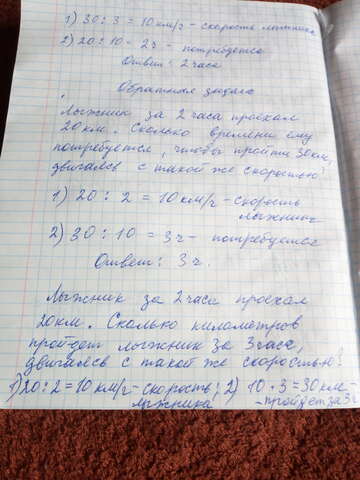 1) 30 : 3 = 10 км/ч - скорость лыжника
2) 20 : 10 - 2ч - потребуется
Ответ: 2 часа
Обратная задача
Лыжник за 2 часа проехал
20 км. Сколько времени ему
потребуется, чтобы пройти 30 км,
двигаясь с такой же скоростью?
1) 20 : 2 = 10 км/ч - скорость
лыжника
2) 30 : 10 = 3 ч - потребуется
Ответ: 3 ч.
Лыжник за 2 часа проехал
20 км. Сколько километров
пройдет лыжник за 3 часа,
двигаясь с такой же скоростью?
1) 20 : 2 = 10 км/ч - скорость; 2) 10 · 3 = 30 км -
лыжника - пройдет за 3 ч